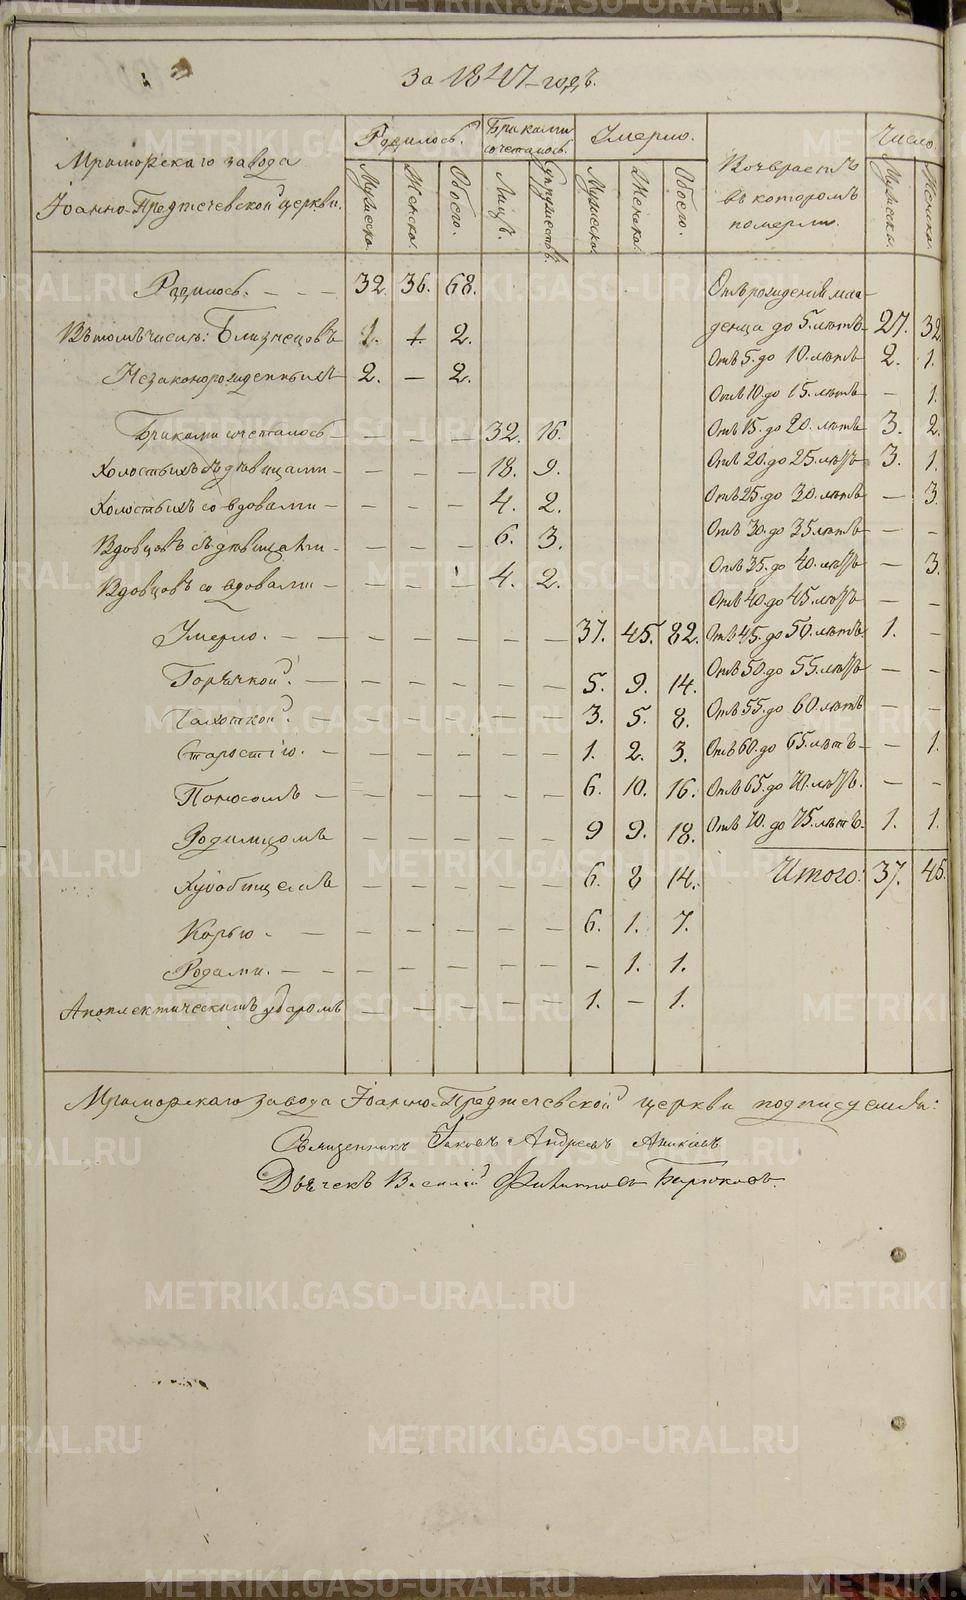 За 1847 годъ.
Мраморскаго завода
Iоанно-Предтечевской церкви.
Родилось.
Мужеска.
Женска.
Обоего.
Браками сочеталось.
Лицъ.
Супружествъ.
Умерло.
Мужеска.
Женска.
Обоего.
Возврастъ
въ которомъ
померли.
Число.
Мужеска.
Женска.
Родилось. - - - 32. 36. 68.
Въ томъ числѣ: Близнецовъ 1. 1. 2.
Незаконорожденныхъ 2. - 2.
Браками сочеталось - - - - 32. 16.
Холостыхъ съ дѣвицами - - - - 18. 9.
Холостыхъ со вдовами - - - - 4. 2.
Вдовцовъ съ дѣвицами - - - - 6. 3.
Вдовцовъ со вдовами - - - - 4. 2.
Умерло. - - - - - - - 37. 45. 82.
Горячкой. - - - - - - 5. 9. 14.
Чахоткой. - - - - - - 3. 5. 8.
Старостiю. - - - - - - 1. 2. 3.
Поносомъ - - - - - - 6. 10. 16.
Родимцомъ - - - - - 9 9. 18.
- - - - - 6. 8 14.
Корью. - - - - - - 6. 1. 7.
Родами. - - - - - - - - 1. 1.
Апоплектическимъ ударомъ - - - - - 1. - 1.
Отъ рожденiя мла-
денца до 5. лѣтъ 27. 32
Отъ 5. до 10. лѣтъ 2. 1.
Отъ 10. до 15. лѣтъ - 1.
Отъ 15. до 20. лѣтъ 3. 2.
Отъ 20. до 25. лѣтъ 3. 1.
Отъ 25. до 30. лѣтъ - 3.
Отъ 30. до 35 лѣтъ - -
Отъ 35. до 40. лѣтъ - 3.
Отъ 40. до 45. лѣтъ - -
Отъ 45. до 50. лѣтъ 1. -
Отъ 50. до 55. лѣтъ - -
Отъ 55. до 60. лѣтъ - -
Отъ 60. до 65. лѣтъ - - 1.
Отъ 65. до 70. лѣтъ. - -
Отъ 70. до 75. лѣтъ. 1. 1.
Итого: 37. 45.
Мраморскаго завода Iоанно-Предтечевской церкви подписуемся:
Священникъ Iаковъ Андреевъ
Дьячекъ Василiй Филиповъ Бирюковъ.
METRIKI.GASO-URAL.RU